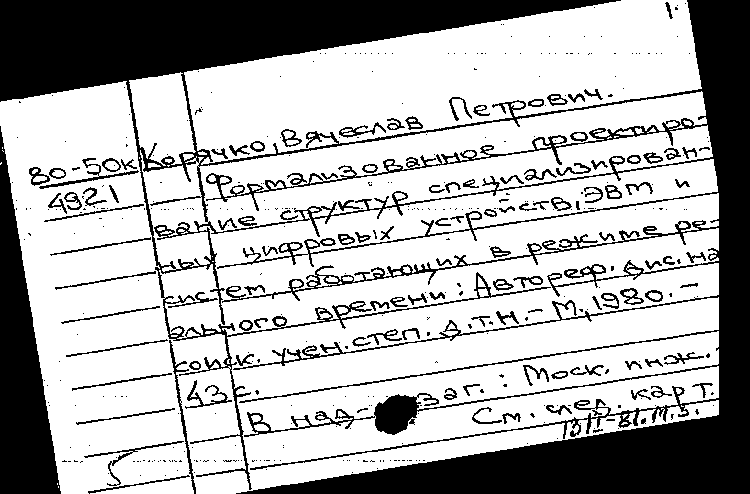 1.
80-50к Корячко, Вячеслав Петрович.
4921 Формализованное проектиро-
вание структур специализирован-
ных цифровых устройств, ЭВМ и
систем, работающих в режиме ре-
ального времени: Автореф. дис. на
соиск. учен. степ. д.т.н. - М., 1980. -
43 с.
В над- заг.: Моск. инж.-
См. след. карт.